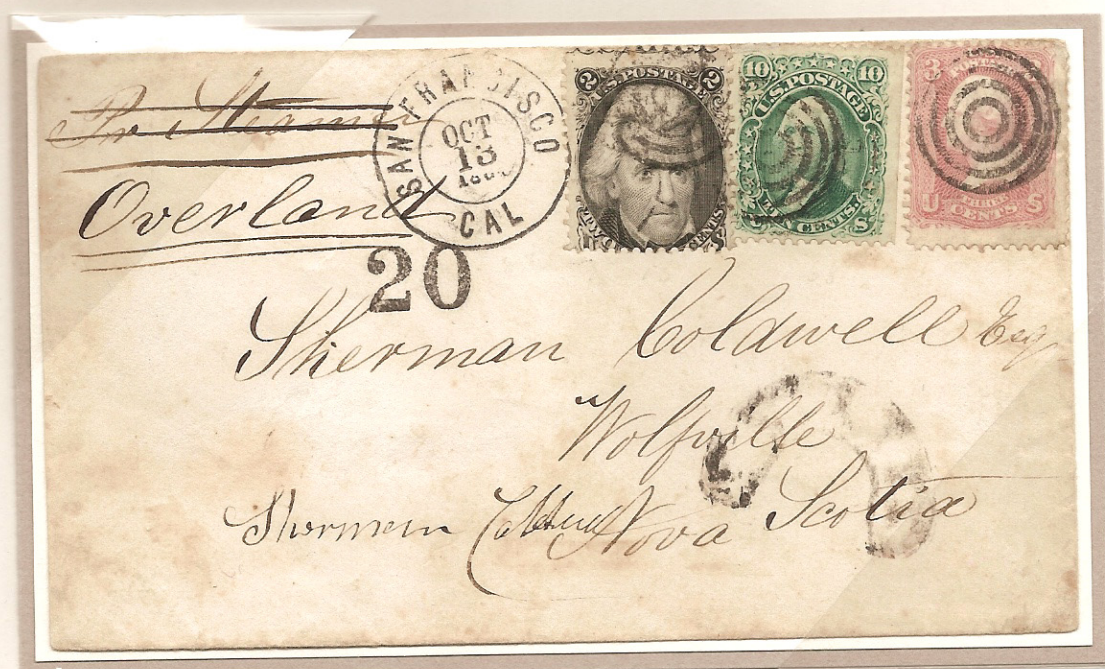 Pr Steamer
Overland
SAN FRANCISCO
OCT
13
CAL
2 U.S. POSTAGE 2
10 10
U.S. POSTAGE
TEN CENTS
U S
3
POSTAGE
THREE
U CENTS S
20
Sherman Coldwell Esq
Wolfville
Nova Scotia
Sherman